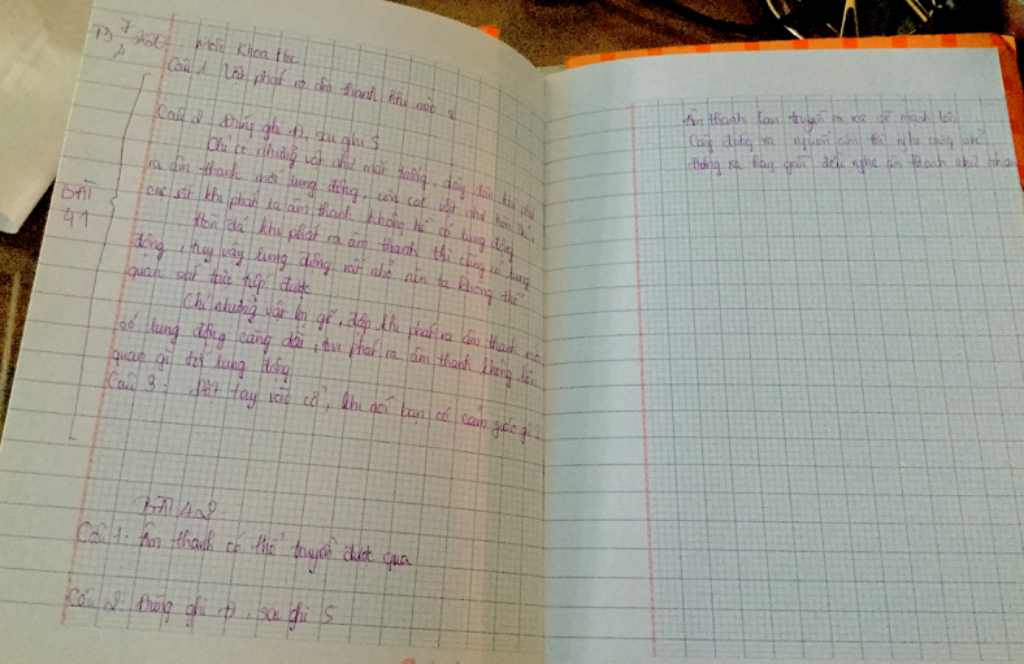 Môn Khoa học
Câu 1 Vật phát ra âm thanh khi nào?
Câu 2 Đúng ghi Đ, sai ghi S
Chỉ có những vật như mặt trống, dây đàn khi phát
ra âm thanh mới rung động, còn các vật như hòn đá,
cục sắt khi phát ra âm thanh không hề có rung động
Hòn đá khi phát ra âm thanh thì cũng có rung
động, tuy vậy rung động rất nhỏ nên ta không thể
quan sát trực tiếp được
Chỉ những vật bị gõ, đập khi phát ra âm thanh mới
có rung động, thổi phát ra âm thanh không liên
quan gì tới rung động
Câu 3: Đặt tay vào cổ, khi nói bạn có cảm giác gì?
BÀI
41
BÀI 42
Câu 1: Âm thanh có thể truyền được qua
Câu 2: Đúng ghi Đ, sai ghi S
Âm thanh lan truyền ra xa sẽ mạnh lên
Càng đứng xa nguồn âm thì nghe càng nhỏ
Đứng xa hay gần đều nghe âm thanh như nhau